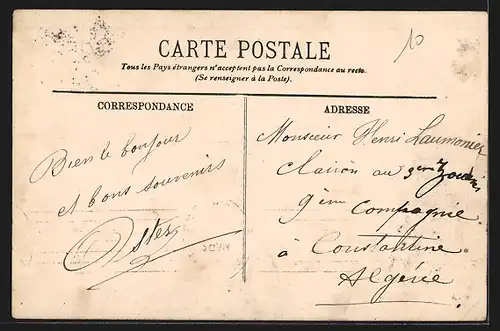 CARTE POSTALE
Tous les Pays étrangers n'acceptent pas la Correspondance au recto.
(Se renseigner à la Poste).
10
CORRESPONDANCE
Bien le bonjour
et bons souvenirs
ADRESSE
Monsieur Henri Laumonier
clairon au 3eme Zouaves
9eme Compagnie
à Constantine
Algérie